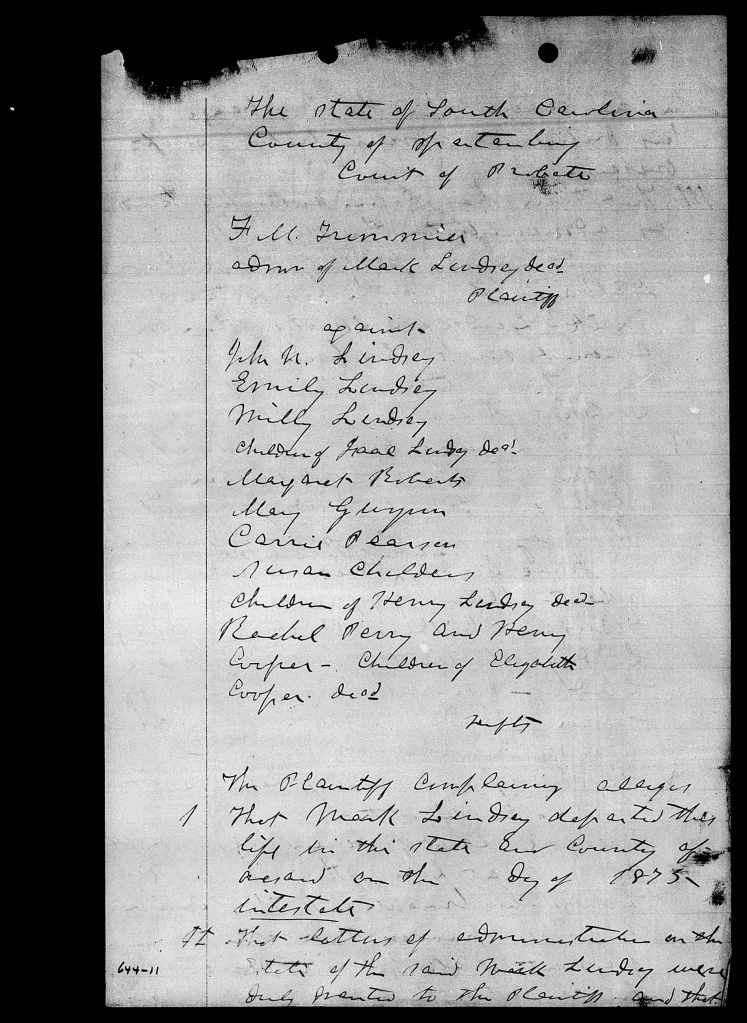 The State of South Carolina
County of Spartanburg
Court of Probate
F. M. Trimmier
admr of Mark Lindsey decd
Plaintiff
against
John N. Lindsey
Emily Lindsey
Milly Lindsey
Children of Isaac Lindsey decd
Margaret Roberts
Mary Gwynn
Carrie Pearson
Susan Childers
Children of Henry Lindsey decd
Rachel Perry and Henry
Cooper - Children of Elizabeth
Cooper. decd
Defts
The Plaintiff Complaining alleges
I That Mark Lindsey departed this
life in the state and County of
on the Day of 1875
intestate
II That letters of administration on the
state of the said Mark Lindsey were
duly granted to the Plaintiff and that
644-11